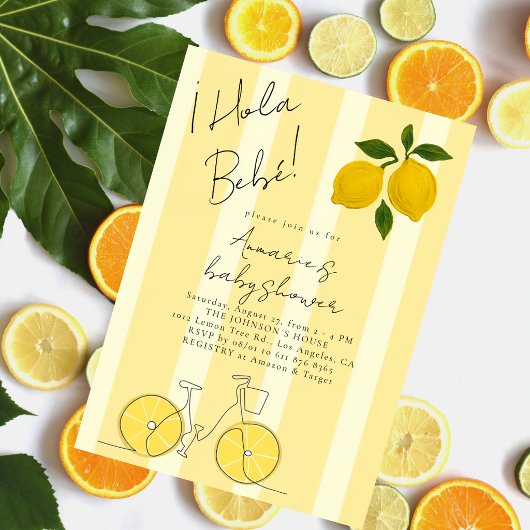 ¡Hola
Bebé!
please join us for
Annmarie's
babyshower
Saturday, August 27, from 2 - 4 PM
THE JOHNSON'S HOUSE
1012 Lemon Tree Rd., Los Angeles, CA
RSVP by 08/01 to 611 876 8365
REGISTRY at Amazon & Target